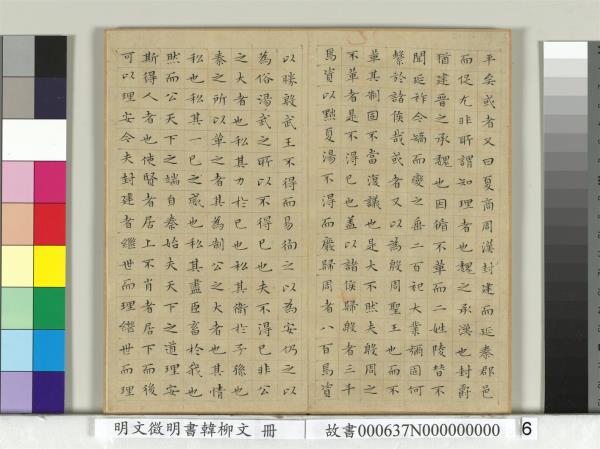 平矣或者又曰夏商周漢封建而延秦郡邑
而促尤非所謂知理者也魏之承漢也封爵
猶建晉之承魏也因循不革而二姓陵替不
聞延祚今矯而變之垂二百祀大業彌固何
繫於諸侯哉或者又以為殷周聖王也而不
革其制固不當復議也是大不然夫殷周之
不革者是不得已也蓋以諸侯歸殷者三千
焉資以黜夏湯不得而廢歸周者八百焉資
以勝殷武王不得而易徇之以為安仍之以
為俗湯武之所以不得已也夫不得已非公
之大者也私其力於己也私其衛於子孫也
秦之所以革之者其為制公之大者也其情
私也私其一己之威也私其盡臣畜於我也
然而公天下之端自秦始夫天下之道理安
斯得人者也使賢者居上不肖者居下而後
可以理安今夫封建者繼世而理繼世而理
明文徵明書韓柳文 冊
故書000637N000000000
6